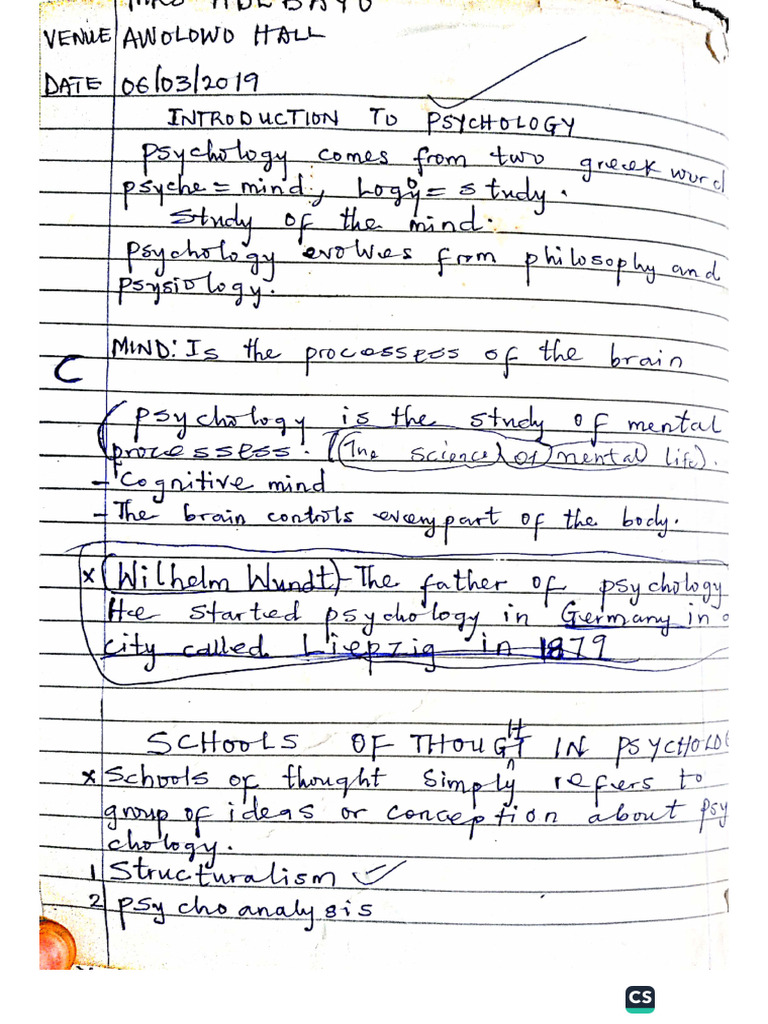 VENUE AWOLOWO HALL
DATE 06/03/2019
INTRODUCTION TO PSYCHOLOGY
Psychology comes from two greek word
psyche = mind, Logoy = study.
Study of the mind.
Psychology evolves from philosophy and
psysiology.
MIND: Is the processess of the brain
C
(psychology is the study of mental
processess. (The science of mental life).
- Cognitive mind
- The brain controls every part of the body.
x (Wilhelm Wundt) - The father of psychology
He started psychology in Germany in a
city called Liepzig in 1879
SCHOOLS OF THOUGHT IN PSYCHOLOG
x Schools of thought simply refers to
group of ideas or conception about psy
chology.
1 Structuralism ✓
2 psychoanalysis
CS